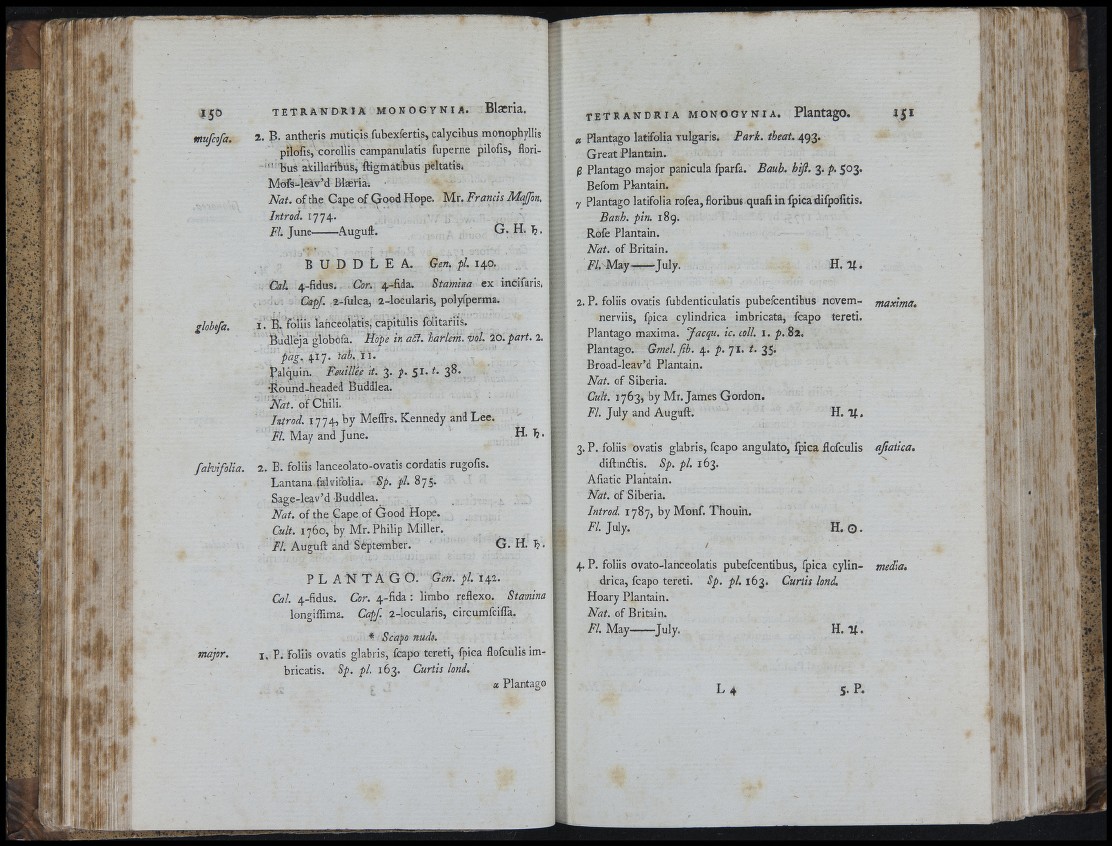 150 TETRANDRIA MONOGYNIA. Blæria.
muſcoſa. 2. B. antheris muticis ſubexſertis, calycibus monophyllis
piloſis, corollis campanulatis ſuperne piloſis, flori-
bus axillaribus, ſtigmatibus peltatis.
Moſs-leav'd Blæria.
Nat. of the Cape of Good Hope. Mr. Francis Maſſon.
Introd. 1774.
Fl. June——Auguſt. G. H. ♄.
BUDDLEA. Gen. pl. 140.
Cal. 4-fidus. Cor. 4-fida. Stamina ex inciſuris.
Capſ. 2-ſulca, 2-locularis, polyſperma.
globoſa. 1. B. foliis lanceolatis, capitulis ſolitariis.
Budleja globoſa. Hope in act. harlem. vol. 20. part. 2.
pag. 417. tab. 11.
Palquin. Feuillée it. 3. p. 51. t. 38.
Round-headed Buddlea.
Nat. of Chili.
Introd. 1774, by Meſſrs. Kennedy and Lee.
Fl. May and June. H. ♄.
ſalvifolia. 2. B. foliis lanceolato-ovatis cordatis rugoſis.
Lantana ſalvifolia. Sp. pl. 875.
Sage-leav'd Buddlea.
Nat. of the Cape of Good Hope.
Cult. 1760, by Mr. Philip Miller.
Fl. Auguſt and September. G. H. ♄.
PLANTAGO. Gen. pl. 142.
Cal. 4-fidus. Cor. 4-fida: limbo reflexo. Stamina
longiſſima. Capſ. 2-locularis, circumſciſſa.
* Scapo nudo.
major. 1. P. foliis ovatis glabris, ſcapo tereti, ſpica floſculis im-
bricatis. Sp. pl. 163. Curtis lond.
α Plantago
TETRANDRIA MONOGYNIA. Plantago. 151
α Plantago latifolia vulgaris. Park. theat. 493.
Great Plantain.
β Plantago major panicula ſparſa. Bauh. hiſt. 3. p. 503.
Beſom Plantain.
γ Plantago latifolia roſea, floribus quaſi in ſpica diſpoſitis.
Bauh. pin. 189.
Roſe Plantain.
Nat. of Britain.
Fl. May——July. H. ♃.
2. P. foliis ovatis ſubdenticulatis pubeſcentibus novem- maxima.
nerviis, ſpica cylindrica imbricata, ſcapo tereti.
Plantago maxima. Jacqu. ic. coll. 1. p. 82.
Plantago. Gmel. ſib. 4. p. 71. t. 35.
Broad-leav'd Plantain.
Nat. of Siberia.
Cult. 1763, by Mr. James Gordon.
Fl. July and Auguſt. H. ♃.
3. P. foliis ovatis glabris, ſcapo angulato, ſpica floſculis aſiatica.
diſtinctis. Sp. pl. 163.
Aſiatic Plantain.
Nat. of Siberia.
Introd. 1787, by Monſ. Thouin.
Fl. July. H. ⊙.
4. P. foliis ovato-lanceolatis pubeſcentibus, ſpica cylin- media.
drica, ſcapo tereti. Sp. pl. 163. Curtis lond.
Hoary Plantain.
Nat. of Britain.
Fl. May——July. H. ♃.
L 4 5. P.